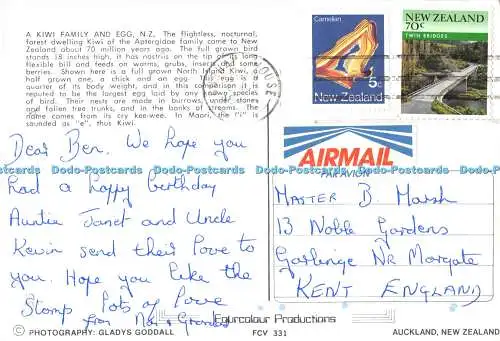 A KIWI FAMILY AND EGG, N.Z. The flightless, nocturnal,
forest dwelling Kiwi of the Aptergidae family came to New
Zealand about 70 million years ago. The full grown bird
stands 18 inches high, it has nostrils on the tip of its long
flexible bill and feeds on worms, grubs, insects and some
berries. Shown here is a full grown North Island Kiwi, a
half grown one, a chick and an egg. This egg is a
quarter of its body weight, and in this comparison it is
reputed to be the largest egg laid by any known species
of bird. Their nests are made in burrows under stones
and fallen tree trunks, and in the banks of streams. The
name comes from its cry kee-wee. In Maori, the "i" is
sounded as "e", thus Kiwi.
Dear Ben. We hope you
had a happy birthday
Auntie Janet and Uncle
Kevin send their love to
you. Hope you like the
Stamp lots of love
from Nan & Grandad
Carnelian
5c
New Zealand
NEW ZEALAND
70c
TWIN BRIDGES
AIRMAIL
PAR AVION
MASTER B. Marsh
13 Noble Gardens
Garlinge Nr Margate
KENT ENGLAND
Dodo-Postcards Dodo-Postcards Dodo-Postcards Dodo-Postcards Dodo-Postcards Dodo-Postcards
© PHOTOGRAPHY: GLADYS GODDALL
Colourcolour Productions
FCV 331
AUCKLAND, NEW ZEALAND